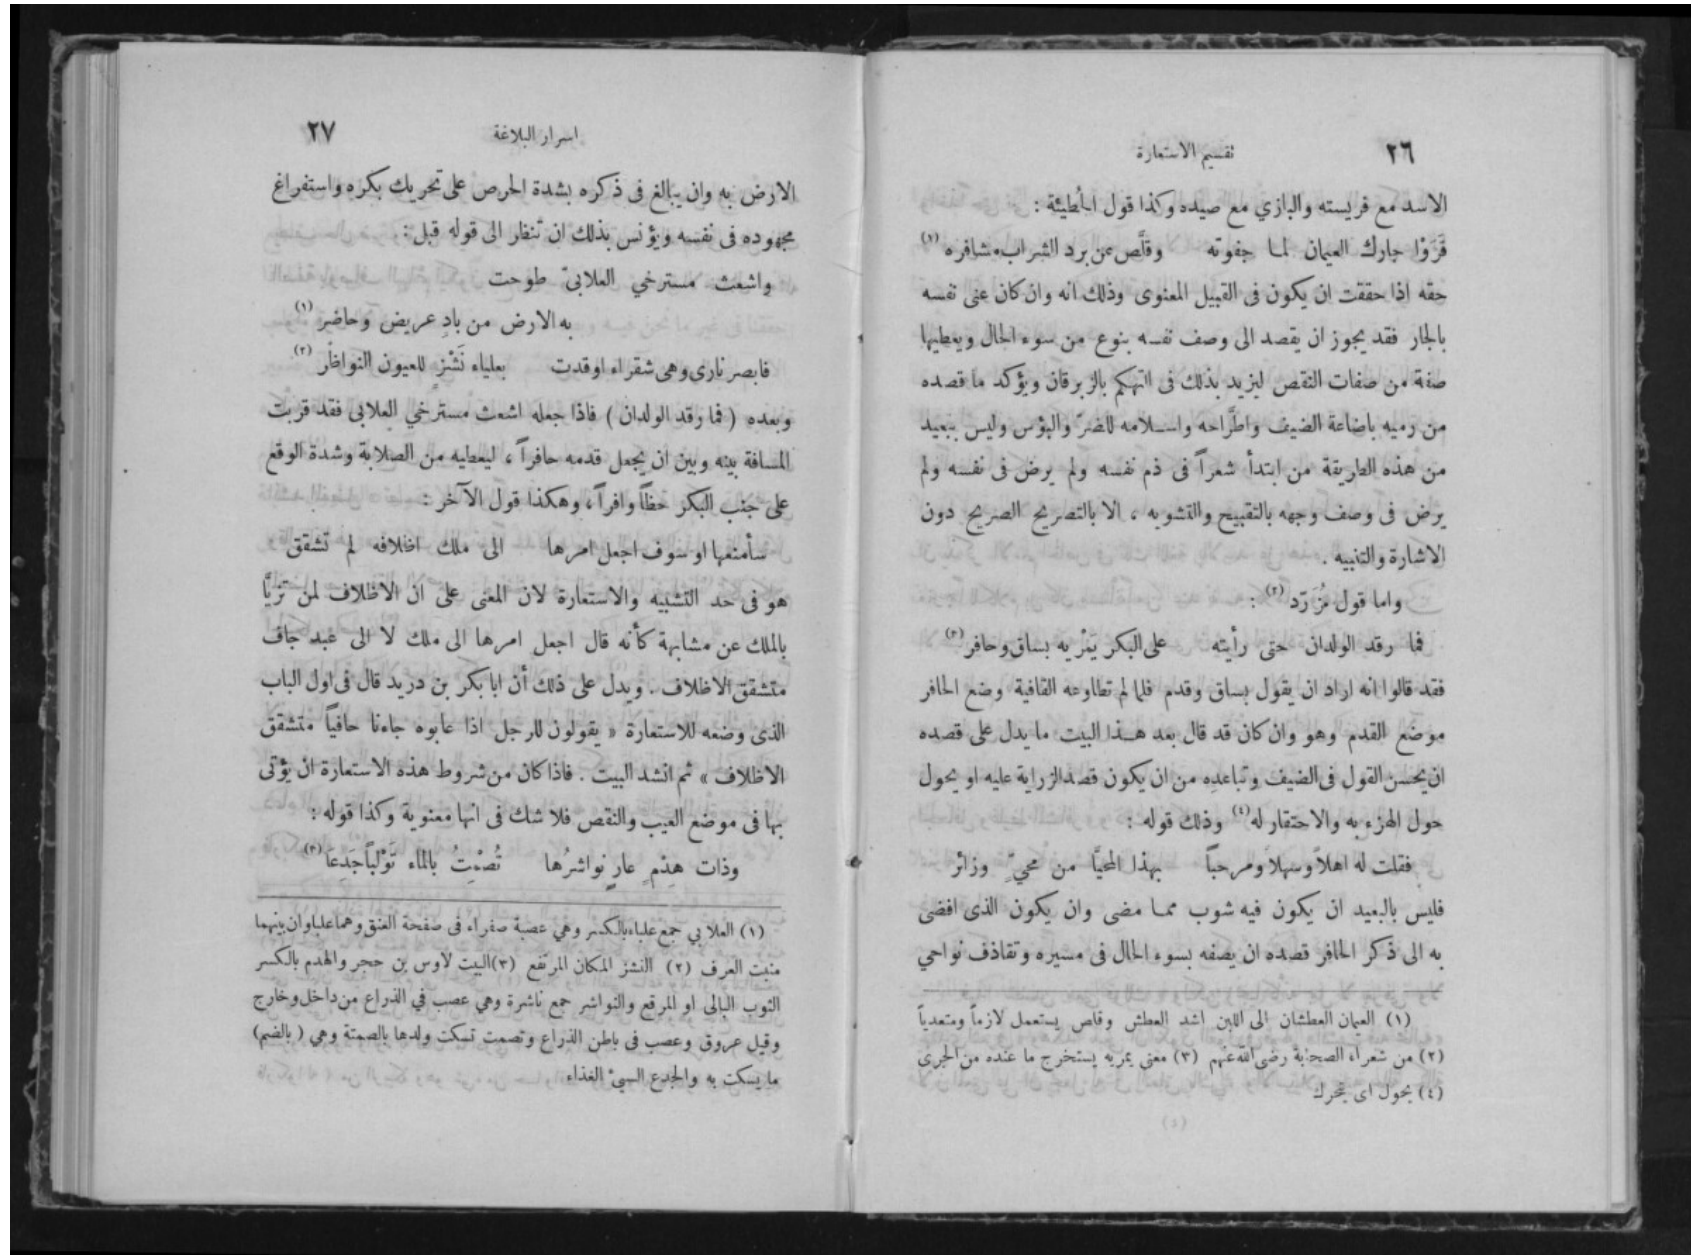 ٢٦
تقسيم الاستعارة
الاسد مع فريسته والبازي مع صيده وكذا قول الحُطيئة :
قَرَوْا جارك العيمان لما جفوته وقلَّص عن برد الشراب مشافره (١)
حقه اذا حققت ان يكون فى القبيل المعنوى وذلك انه وان كان عنى نفسه
بالجار فقد يجوز ان يقصد الى وصف نفسه بنوع من سوء الحال ويعطيها
صفة من صفات النقص ليزيد بذلك فى التهكم بالزبرقان ويؤكد ما قصده
من رميه باضاعة الضيف واطَّراحه واسلامه للضرّ والبؤس وليس ببعيد
من هذه الطريقة من ابتدأ شعراً فى ذم نفسه ولم يرض فى نفسه ولم
يرض فى وصف وجهه بالتقبيح والتشويه ، الا بالتصريح الصريح دون
الاشارة والتنبيه .
واما قول مُزَرّد (٢) :
فما رقد الولدان حتى رأيته على البكر يَمْريه بساق وحافر (٣)
فقد قالوا انه اراد ان يقول بساق وقدم فلما لم تطاوعه القافية وضع الحافر
موضع القدم وهو وان كان قد قال بعد هـذا البيت ما يدل على قصده
ان يحسن القول فى الضيف وتباعدِه من ان يكون قصد الزراية عليه او يحول
حول الهزء به والاحتقار له (٤) وذلك قوله :
فقلت له اهلاً وسهلا ومرحباً بهذا المحيَّا من محيٍّ وزائر
فليس بالبعيد ان يكون فيه شوب مما مضى وان يكون الذى افضى
به الى ذكر الحافر قصده ان يصفه بسوء الحال فى مسيره وتقاذف نواحي
(١) العيمان العطشان الى اللبن اشد العطش وقلص يستعمل لازماً ومتعدياً
(٢) من شعراء الصحابة رضى الله عنهم (٣) معنى يمريه يستخرج ما عنده من الجرى
(٤) يحول اى تحرك
(٤)
اسرار البلاغة
٢٧
الارض به وان يبالغ فى ذكره بشدة الحرص على تحريك بكره واستفراغ
مجهوده فى نفسه ويؤنس بذلك ان تنظر الى قوله قبل :
واشعث مسترخي العلابىّ طوحت
به الارض من بادٍ عريض وحاضر (١)
فابصر نارى وهى شقراء اوقدت بعلياء نَشْزٍ للعيون النواظر (٢)
وبعده ( فما رقد الولدان ) فاذا جعله اشعث مسترخي العلابى فقد قربت
المسافة بينه وبين ان يجعل قدمه حافراً ، ليعطيه من الصلابة وشدة الوقع
على جنب البكر حظاً وافراً ، وهكذا قول الآخر :
سأمنعها او سوف اجعل امرها الى ملك اظلافه لم تشقق
هو فى حد التشبيه والاستعارة لان المعنى على ان الاظلاف لمن تزيَّا
بالملك عن مشابهة كأنه قال اجعل امرها الى ملك لا الى عبد جاف
متشقق الاظلاف . ويدل على ذلك أن ابا بكر بن دريد قال فى اول الباب
الذى وضعه للاستعارة « يقولون للرجل اذا عابوه جاءنا حافياً متشقق
الاظلاف » ثم انشد البيت . فاذا كان من شروط هذه الاستعارة ان يؤتى
بها فى موضع العيب والنقص فلا شك فى انها معنوية وكذا قوله :
وذات هِدْمٍ عارٍ نواشرُها تُصْمِتُ بالماء تَوْلَباً جَدِعَا (٣)
(١) العلابي جمع علباء بالكسر وهي عصبة صفراء فى صفحة العنق وهما علباوان بينهما
منبت العرف (٢) النشز المكان المرتفع (٣) البيت لاوس بن حجر والهدم بالكسر
الثوب البالى او المرقع والنواشر جمع ناشرة وهي عصب في الذراع من داخل وخارج
وقيل عروق وعصب فى باطن الذراع وتصمت تسكت ولدها بالصمتة وهي ( بالضم)
ما يسكت به والجدع السيئ الغذاء